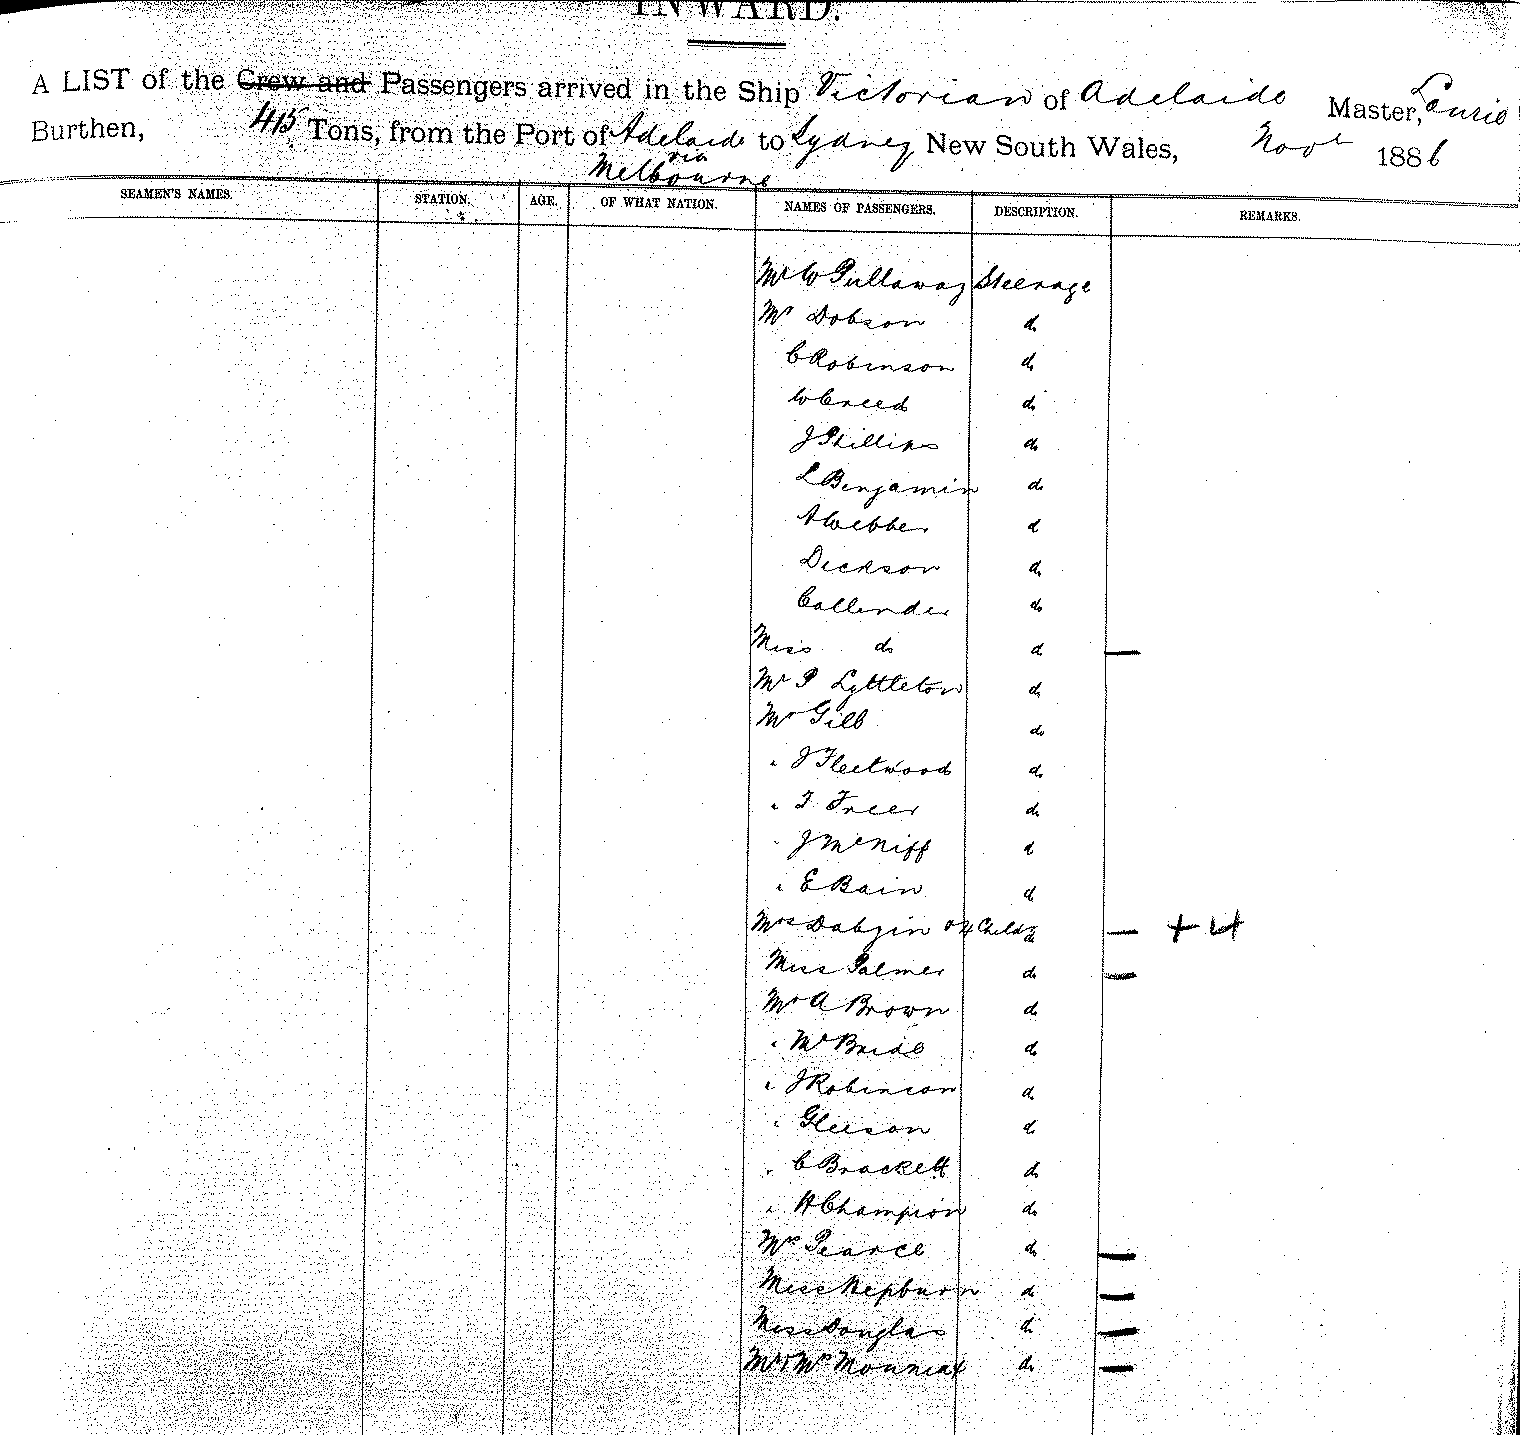 INWARD.
A LIST of the Crew and Passengers arrived in the Ship Victorian of Adelaide Master, Laurie
Burthen, 415 Tons, from the Port of Adelaide to Sydney New South Wales, Novr 1886
via
Melbourne
SEAMEN'S NAMES. STATION. AGE. OF WHAT NATION. NAMES OF PASSENGERS. DESCRIPTION. REMARKS.
Mr W Pullaway Steerage
Mr Dobson do
C Robinson do
W Creed do
J Phillips do
L Benjamin do
A Webber do
Dickson do
Callender do
Miss do do —
Mr P Lyttleton do
Mr Gill do
" J Fleetwood do
" T Freer do
" J McNiff do
" E Bain do
Mrs Dabzin & 4 Childn do — + 4
Miss Palmer do —
Mr A Brown do
" McBride do
" J Robinson do
" Gleeson do
" C Brackett do
" H Champion do
Mrs Pearce do —
Miss Hepburn do —
Miss Douglas do —
Mr & Mrs do —